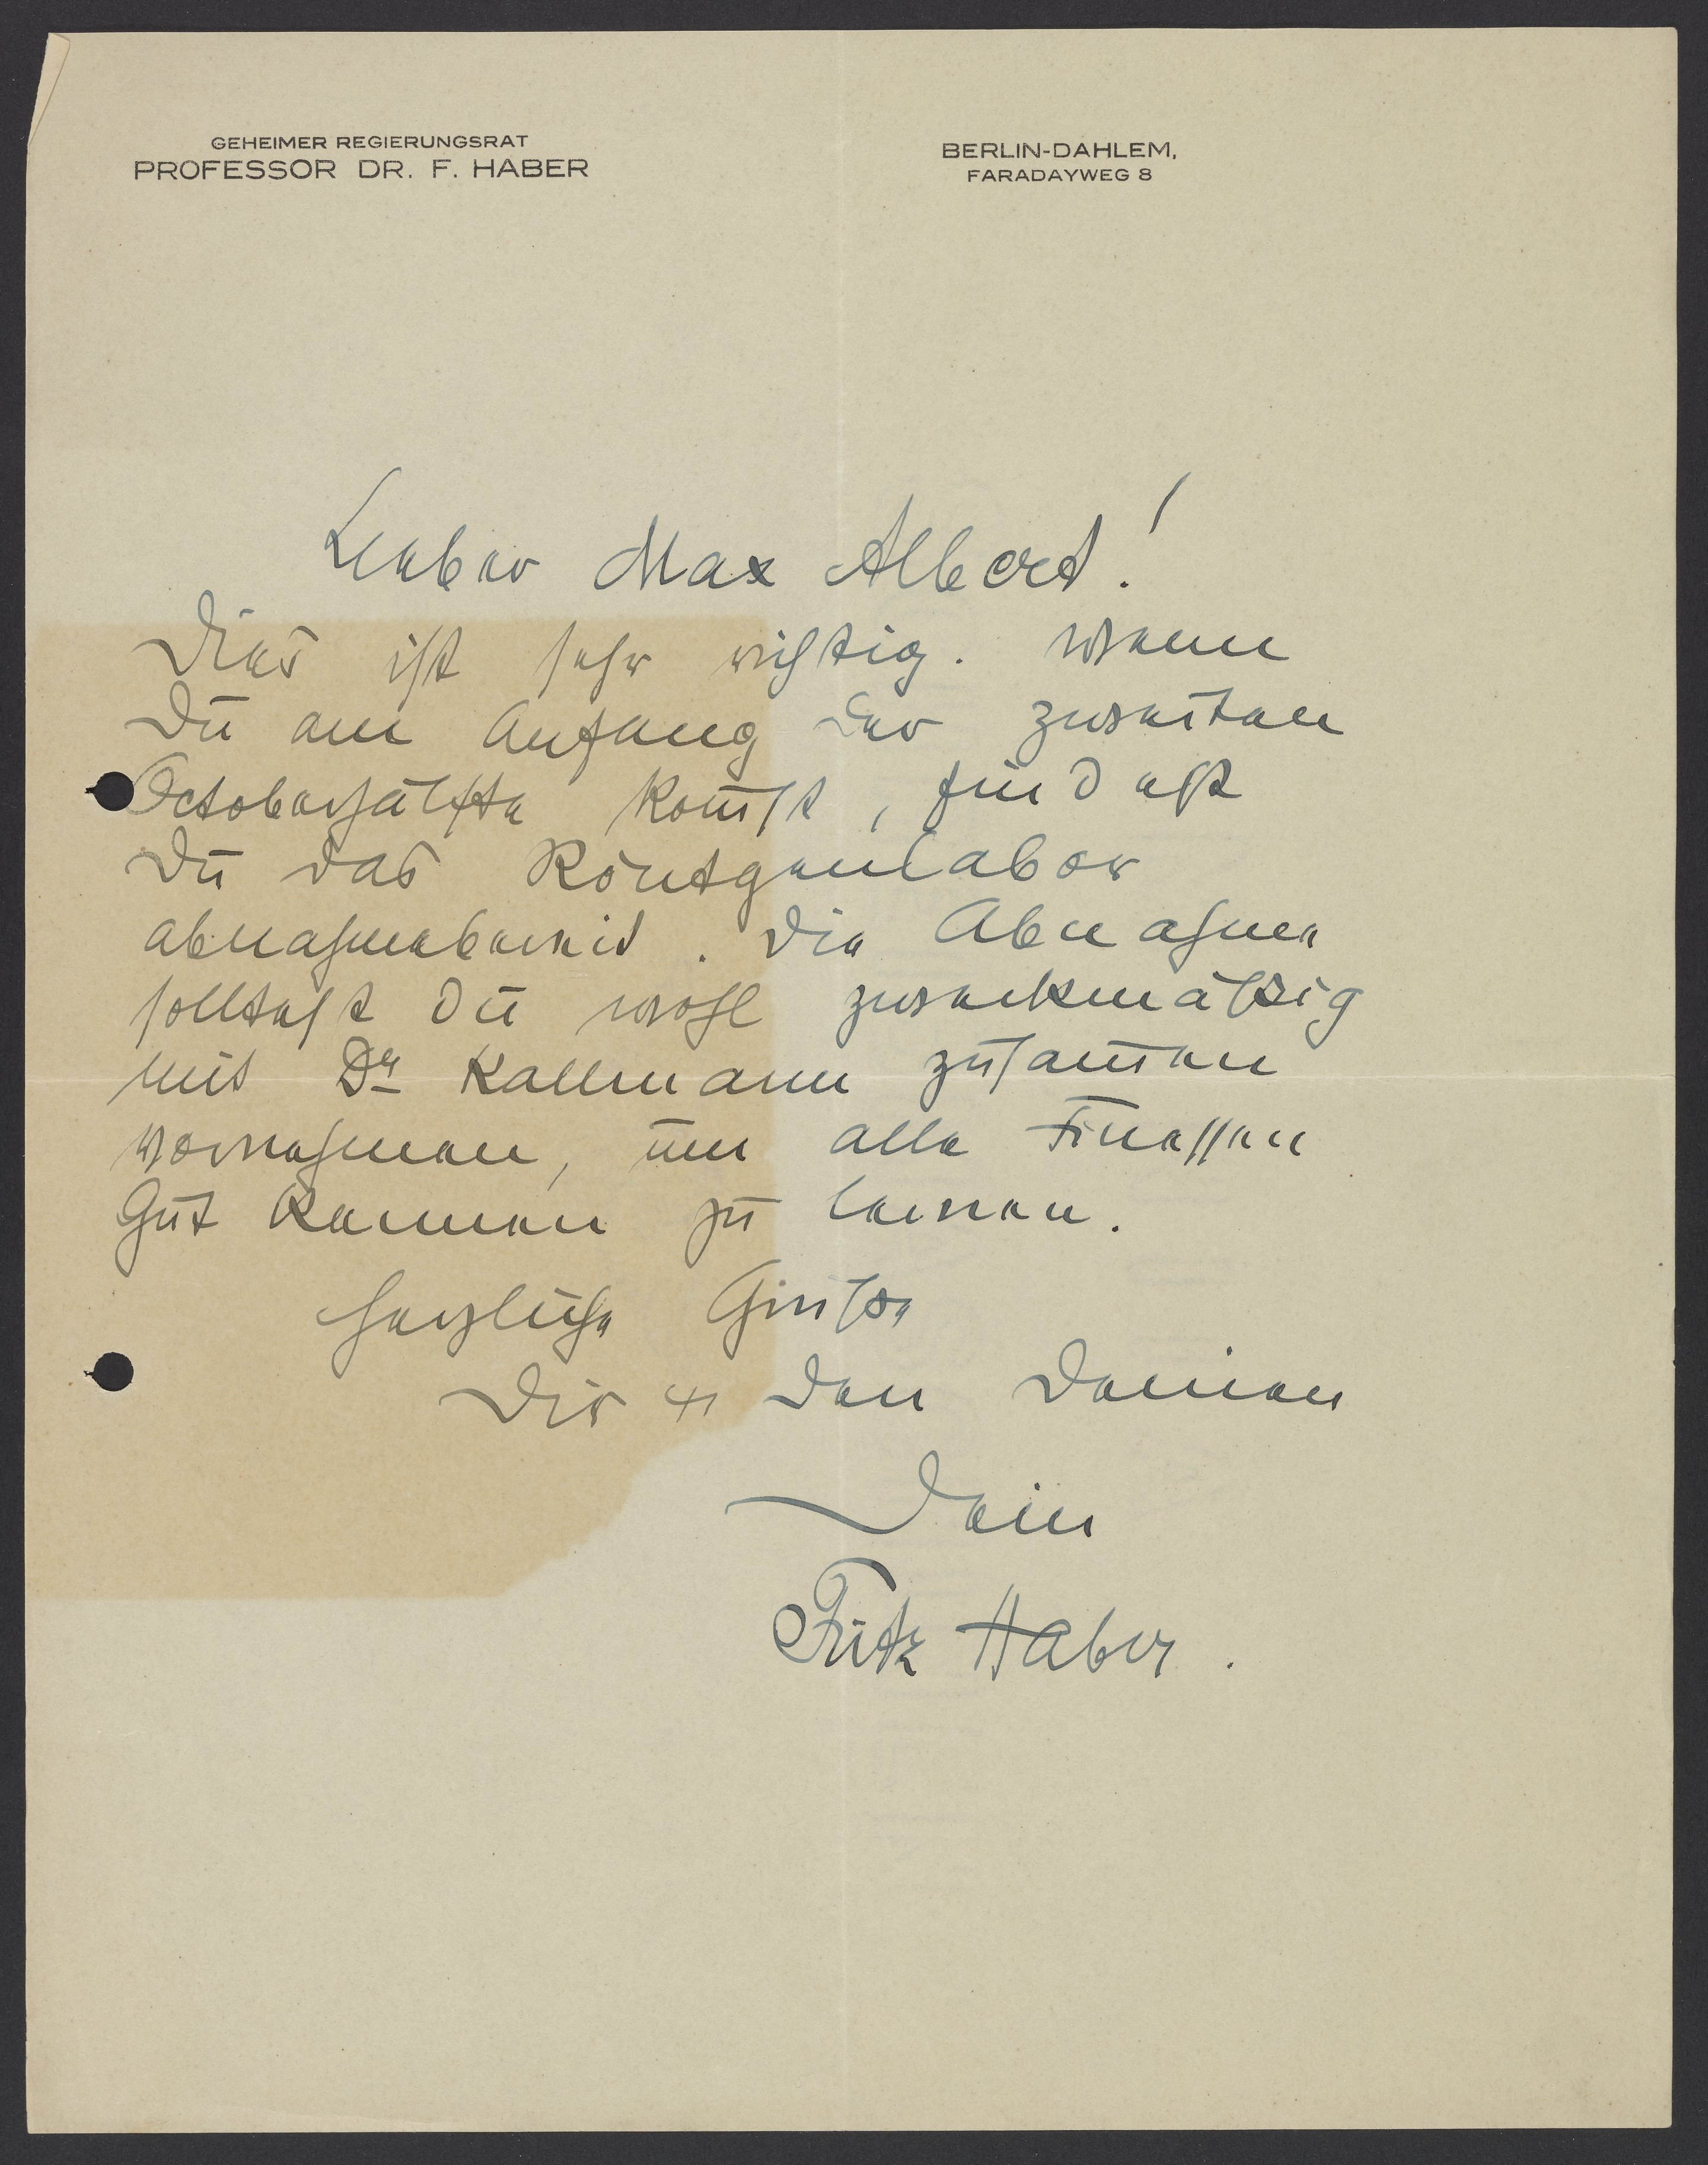 GEHEIMER REGIERUNGSRAT
PROFESSOR DR. F. HABER
BERLIN-DAHLEM,
FARADAYWEG 8
Lieber Max Albert!
Dies ist sehr richtig. Wenn
Du am Anfang der zweiten
Octoberhälfte kom̅st, findest
Du das Röntgenlabor
abnahmebereit. Die Abnahme
solltest Du wohl zweckmäßig
mit Dr Kallmann zusam̅en
vornehmen, um alle Finessen
gut kennen zu lernen.
Herzliche Grüße
Dir u den Deinen
Dein
Fritz Haber.